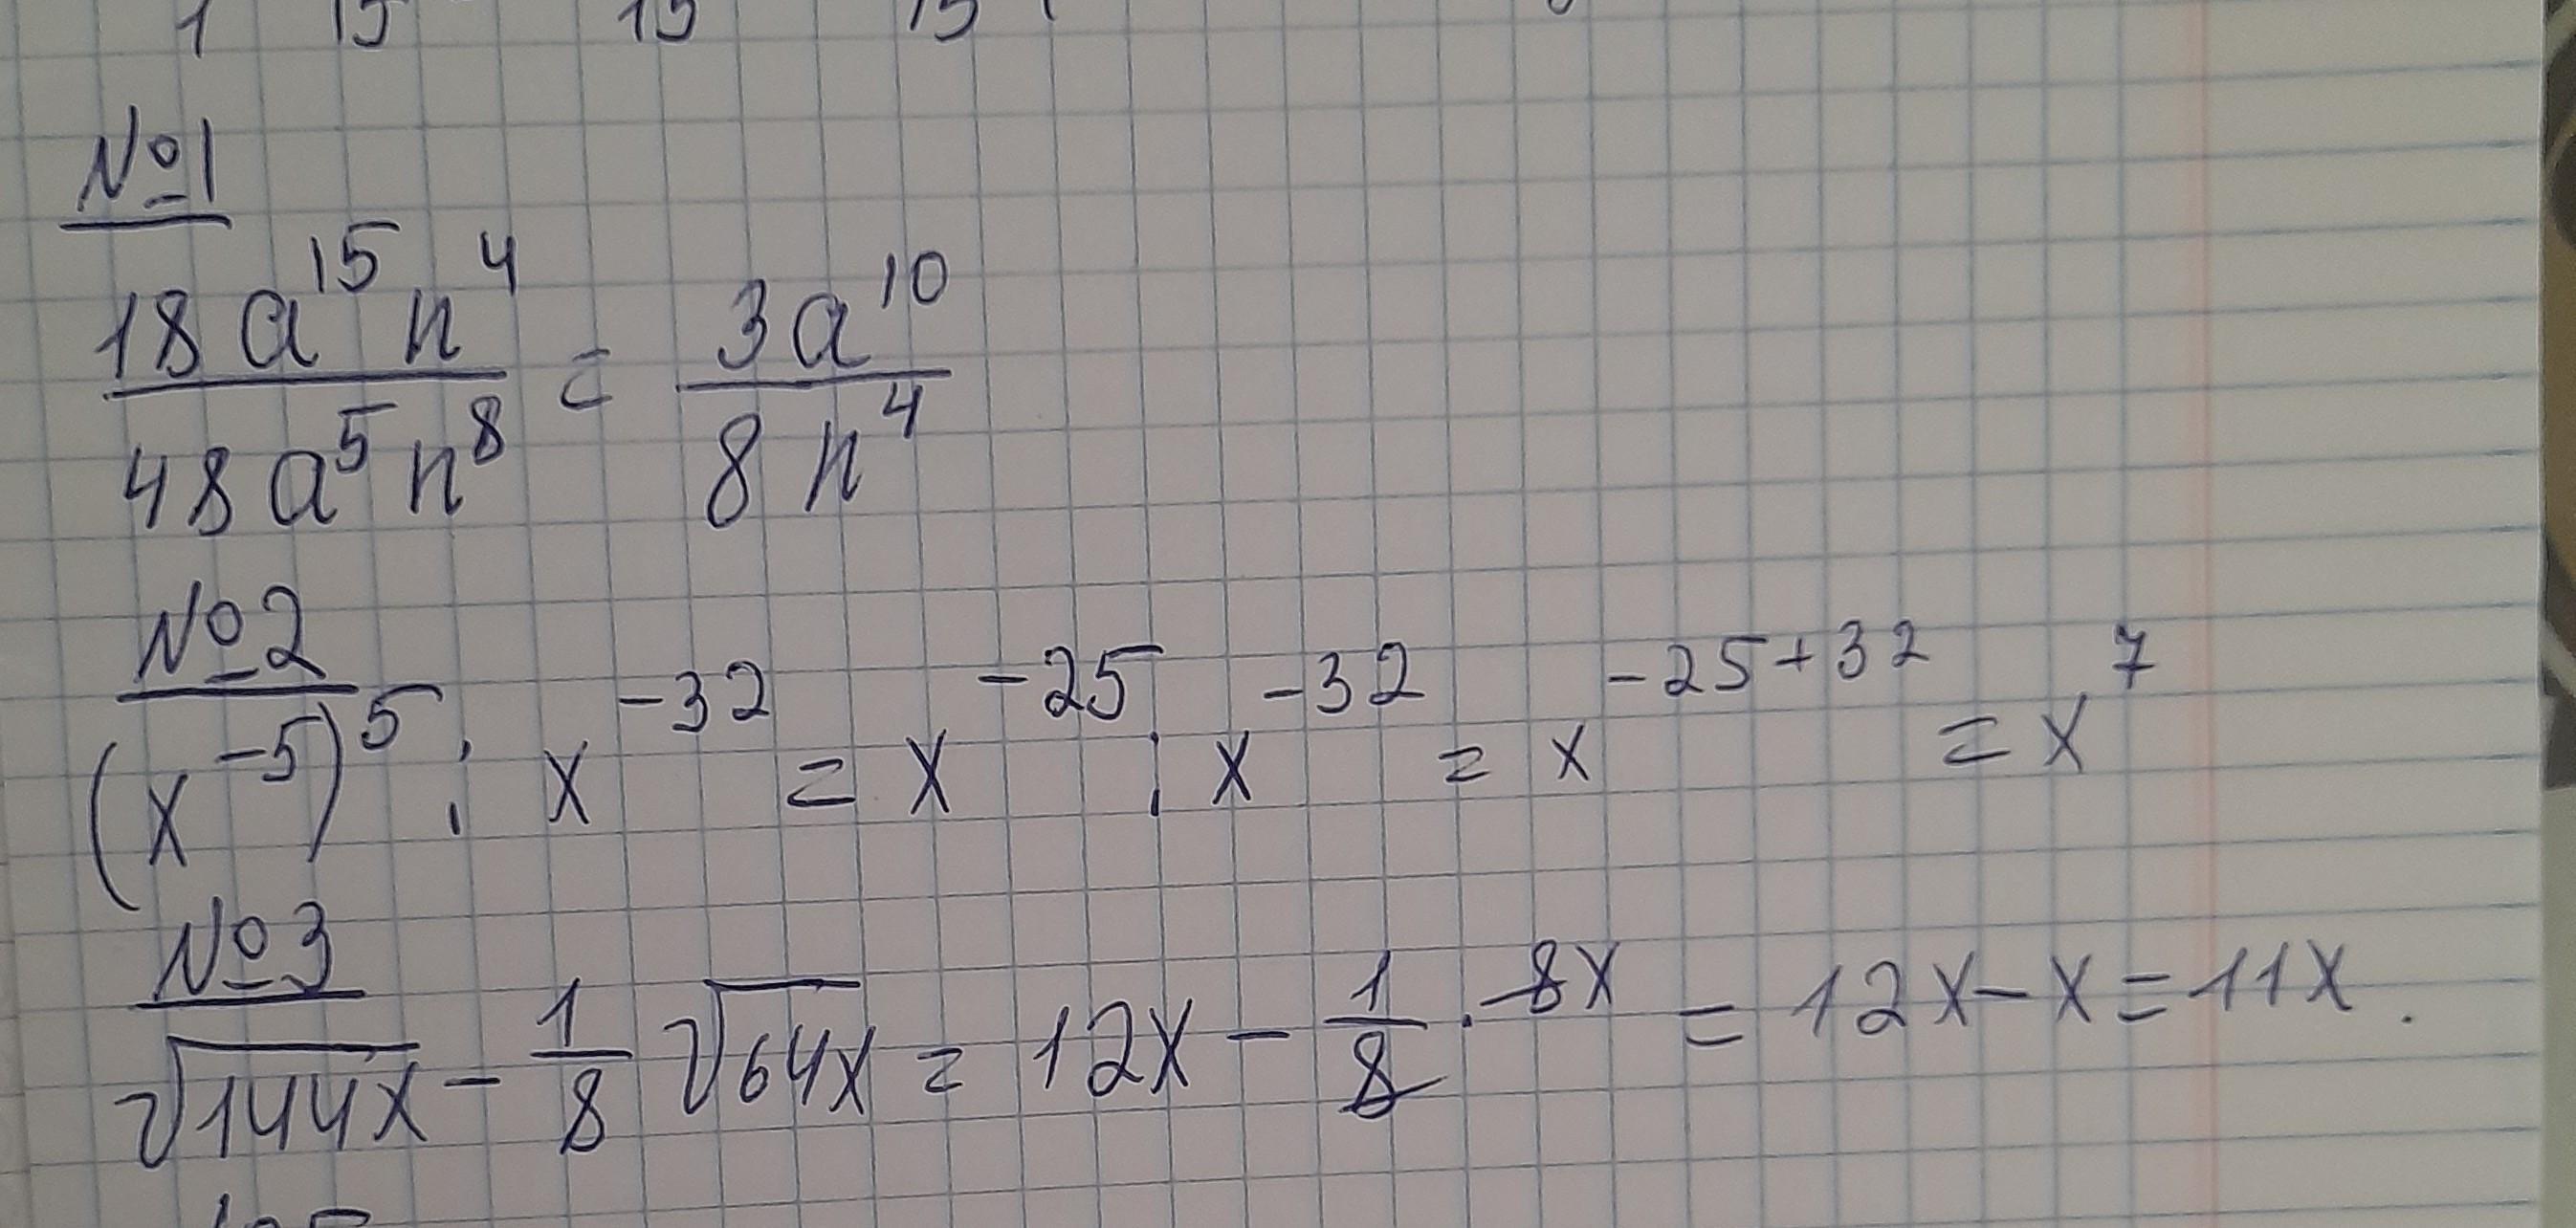 1 15 15 15
№1
18a¹⁵n⁴ / 48a⁵n⁸ = 3a¹⁰ / 8n⁴
№2
(x⁻⁵)⁵ : x⁻³² = x⁻²⁵ : x⁻³² = x⁻²⁵⁺³² = x⁷
№3
√144x − 1/8 √64x = 12x − 1/8 · 8x = 12x − x = 11x.